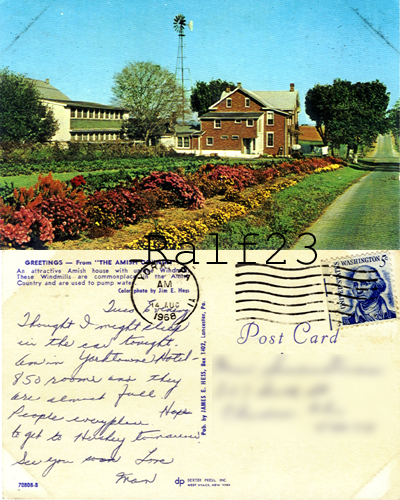 Ralf23
GREETINGS — From "THE AMISH
An attractive Amish house with Windmill
These Windmills are commonplace in the Amish
Country and are used to pump water.
Color photo by Jim E. Hess
AM
14 AUG
1968
WASHINGTON
Post Card
Tues
Thought I might sleep
in the car tonight.
Am in Yorktowne Hotel -
850 rooms and they
are almost full
People everyplace. Hope
to get to Hershey tomorrow
See you soon Love
Pub. by JAMES E. HESS, Box 1402, Lancaster, Pa.
70808-B
dp DEXTER PRESS, INC.
WEST NYACK, NEW YORK